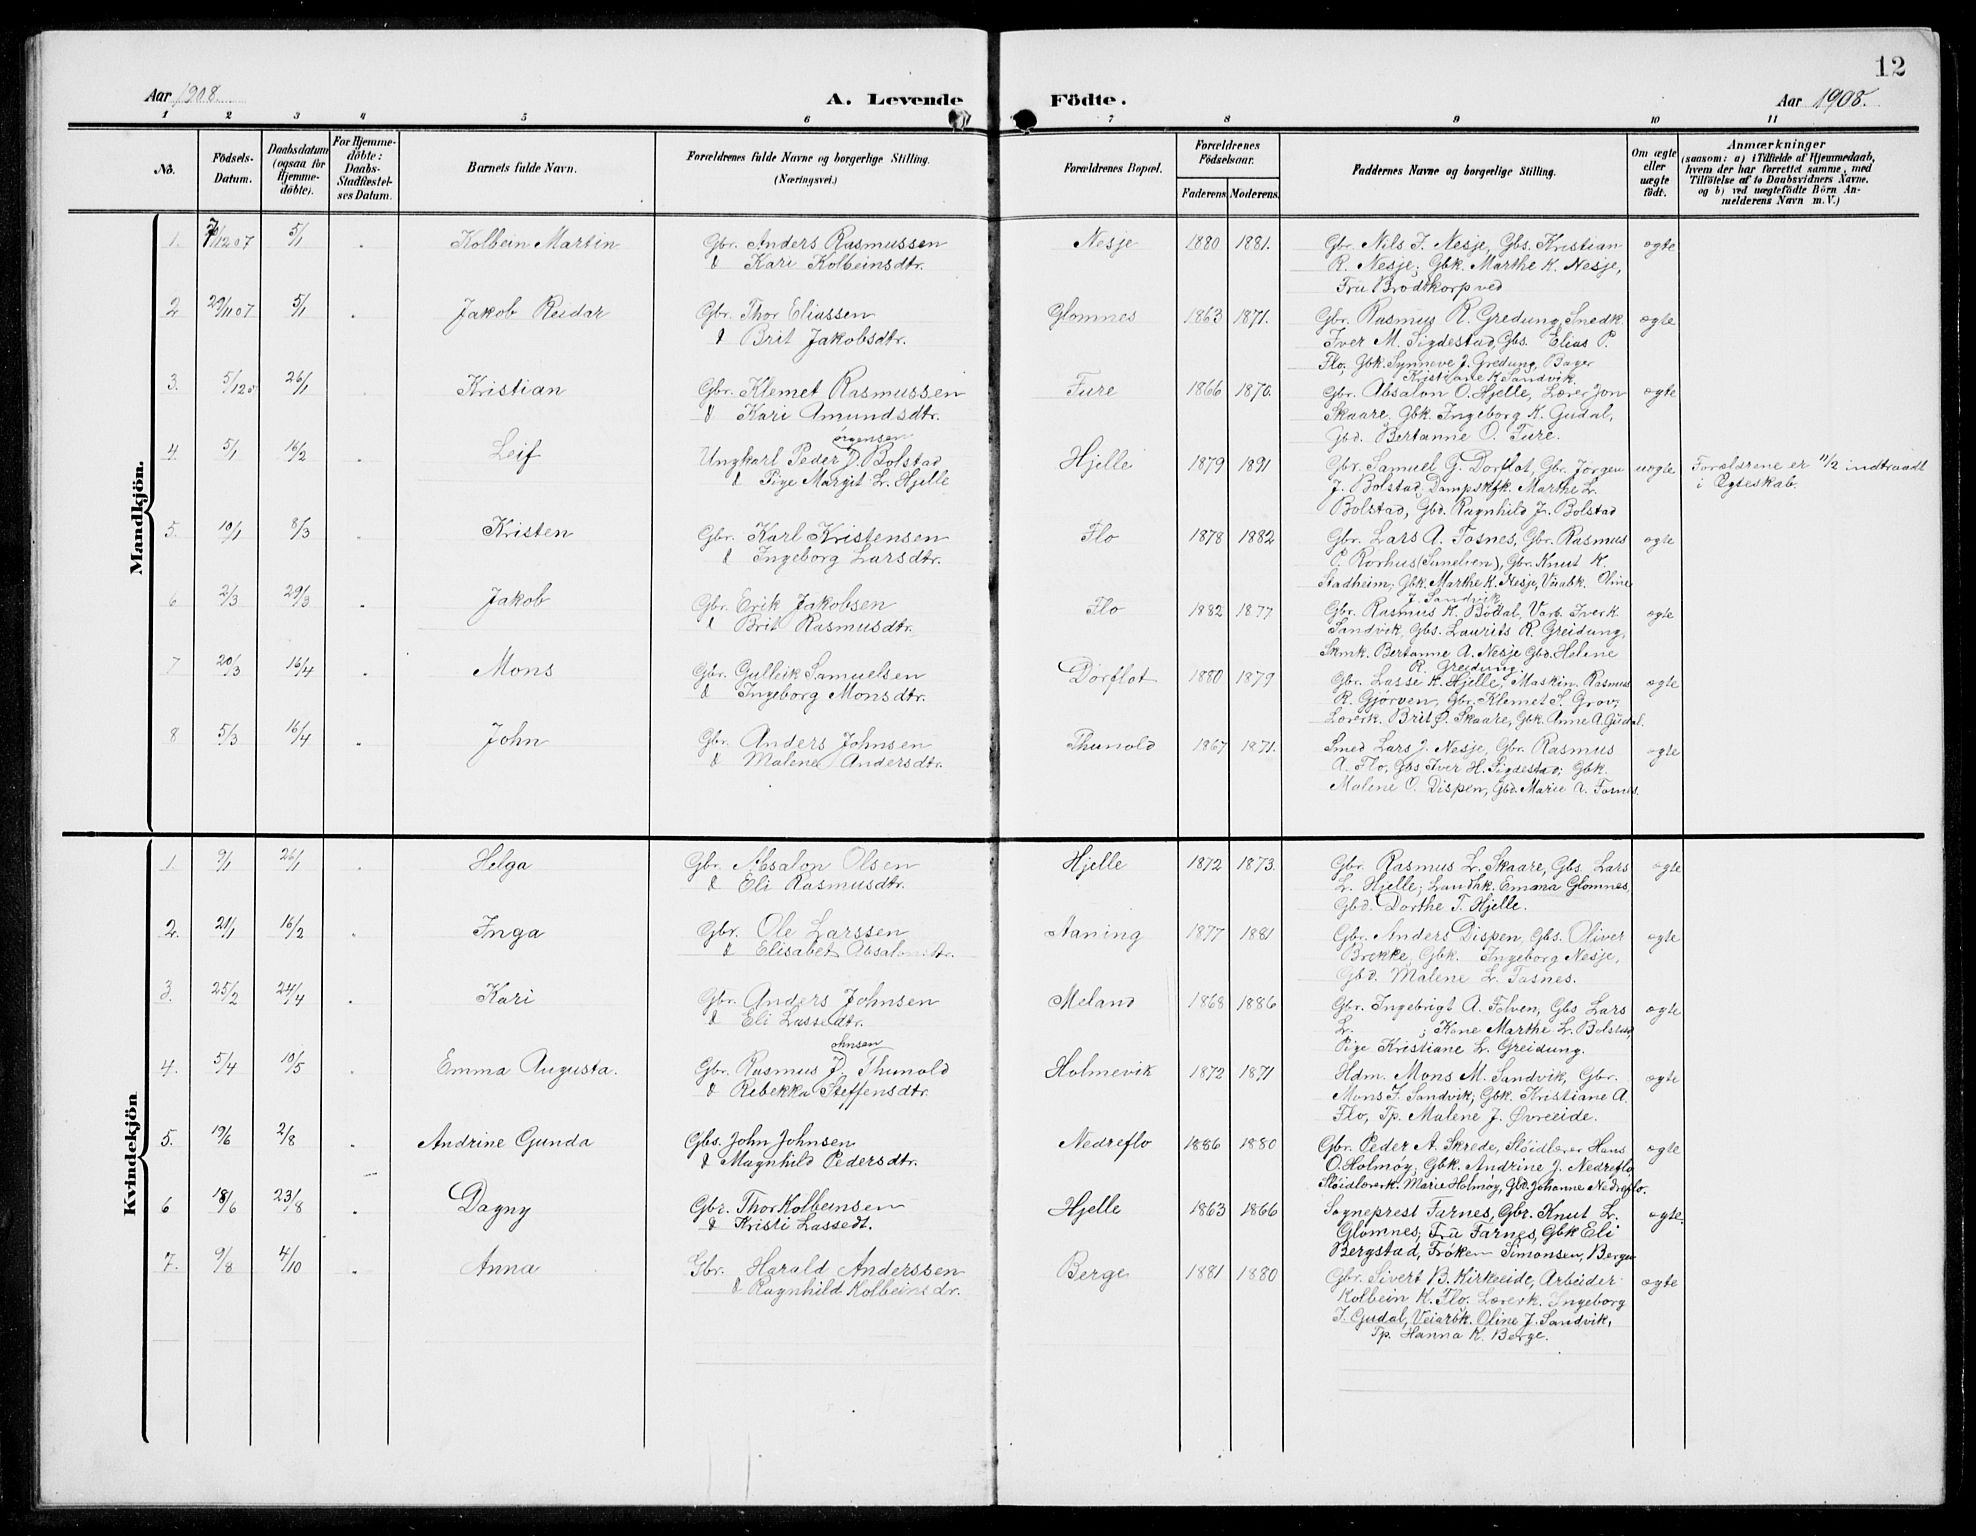 12
Aar 1908.
A. Levende Födte.
Aar 1908.
1 2 3 4 5 6 7 8 9 10 11
No.
Födsels-Datum.
Daabsdatum (ogsaa for Hjemme-döbte).
For Hjemme-döbte: Daabs-Stadfæstel-ses Datum.
Barnets fulde Navn.
Forældrenes fulde Navne og borgerlige Stilling. (Næringsvei.)
Forældrenes Bopæl.
Forældrenes Födselsaar.
Faderens. Moderens.
Faddernes Navne og borgerlige Stilling.
Om ægte eller uægte födt.
Anmærkninger
(saasom: a) i Tilfælde af Hjemmedaab,
hvem der har forrettet samme, med
Tilföielse af to Daabsvidners Navne.
og b) ved uægtefödte Börn An-
melderens Navn m. V.)
Mandkjön.
1. 7/12 07 5/1 Kolbein Martin Gbr. Anders Rasmussen Nesje 1880 1881. Gbr. Nils J. Nesje, Gbs. Kristian ægte
& Kari Kolbeinsdtr. R. Nesje; Gbk. Marthe K. Nesje,
Fru Brodtkorp ved
2 29/11 07 5/1 Jakob Reidar Gbr. Thor Eliassen Glomnes 1863 1871. Gbr. Rasmus R. Gredung, Snedk. ægte
& Brit Jakobsdtr. Iver M. Sigdestad, Gbs. Elias P.
Flo, Gbk. Synneve J. Gredung, Bager
Kristiane K. Sandvik.
3. 5/12 0 26/1 Kristian Gbr. Klemet Rasmussen Fure 1866 1870. Gbr. Absalon O. Hjelle, Lærer Jon ægte
& Kari Amundsdtr. Skaare, Gbk. Ingeborg K. Gudal,
Gbd. Bertanne O. Fure.
4. 5/1 16/2 Leif Ungkarl Peder Jørgensen Bolstad Hjelle 1879 1891 Gbr. Samuel G. Dorflot, Gbr. Jørgen uægte Forældrene er 11/2 indtraadt
& Pige Margit L. Hjelle J. Bolstad, Dampskfk. Marthe L. i Ægteskab.
Bolstad, Gbd. Ragnhild J. Bolstad
5. 10/1 8/3 Kristen Gbr. Karl Kristensen Flo 1878 1882 Gbr. Lars A. Fosnes, Gbr. Rasmus ægte
& Ingeborg Larsdtr. P. Rorhus (Sunelven), Gbr. Knut K.
Stadheim, Gbk. Marthe K. Nesje, Oline
J. Sandvik
6 2/3 29/3 Jakob Gbr. Erik Jakobsen Flo 1882 1877 Gbr. Rasmus K. Bødal, Iver K. ægte
& Brit Rasmusdtr. Sandvik, Gbs. Laurits R. Greidung,
Skmk. Bertanne A. Nesje Gbd. Helene
R. Greidung.
7 20/3 16/4 Mons Gbr. Gulleik Samuelsen Dorflot 1880 1879 Gbr. Lasse K. Hjelle, Maskin. Rasmus ægte
& Ingeborg Monsdtr. R. Gjørven, Gbr. Klemet S. Grov,
Lærerk. Brit O. Skaare, Gbk. Anne A. Gudal.
8 5/3 16/4 John Gbr. Anders Johnsen Thunold 1867 1871. Smed Lars J. Nesje, Gbr. Rasmus ægte
& Malene Andersdtr. A. Flo, Gbs Iver H. Sigdestad; Gbk.
Malene O. Dispen, Gbd. Marie A. Fosnes.
Kvindekjön
1. 9/1 26/1 Helga Gbr. Absalon Olsen Hjelle 1872 1873. Gbr. Rasmus L. Skaare, Gbs. Lars ægte
& Eli Rasmusdtr. L. Hjelle; Landhk. Emma Glomnes,
Gbd. Dorthe T. Hjelle.
2. 21/1 16/2 Inga Gbr. Ole Larssen Aaning 1877 1881 Gbr. Anders Dispen, Gbs. Oliver ægte
& Elisabet Absalonsdtr. Brekke, Gbk. Ingeborg Nesje,
Gbd. Malene L. Fosnes.
3. 25/2 24/4 Kari Gbr. Anders Johnsen Meland 1868 1886 Gbr. Ingebrigt A. Folven, Gbs Lars ægte
& Eli Lassedtr. L. ; Kone Marthe L. Bolstad,
Pige Kristiane L. Greidung.
4. 5/4 10/5 Emma Augusta. Gbr. Rasmus Johnsen Thunold Holmevik 1872 1871 Hdm. Mons M. Sandvik, Gbr. ægte
& Rebekka Steffensdtr. Mons J. Sandvik; Gbk. Kristiane A.
Flo, Tp. Malene J. Øvreeide.
5. 19/6 2/8 Andrine Gunda Gbs. John Johnsen Nedreflo 1886 1880 Gbr. Peder A. Skrede, Sløidlærer Hans ægte
& Magnhild Pedersdtr. O. Holmøy; Gbk. Andrine J. Nedreflo
Sløidlærerk. Marie Holmøy, Gbd. Johanne Nedreflo.
6 18/6 23/8 Dagny Gbr. Thor Kolbeinsen Hjelle 1863 1866 Sogneprest Farnes, Gbr. Knut L. ægte.
& Kristi Lassedt. Glomnes, Fru Farnes, Gbk Eli
Bergstad, Frøken Simonsen, Bergen
7. 9/8 4/10 Anna Gbr. Harald Anderssen Berge 1881 1880 Gbr. Sivert B. Kirkeeide, Arbeider ægte
& Ragnhild Kolbeinsdr. Kolbein K. Flo. Lærerk. Ingeborg
J. Gudal, Veiarbk. Oline J. Sandvik,
Tp. Hanna K. Berge.